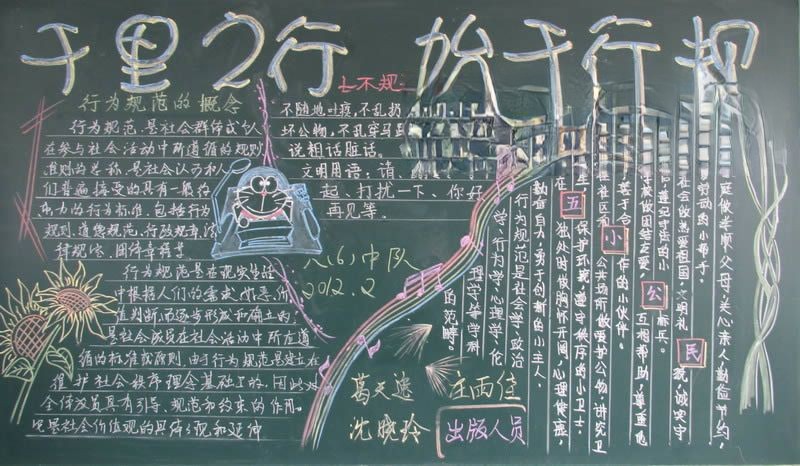 千里之行 始于行规
行为规范的概念
行为规范,是社会群体或个人
在参与社会活动中所遵循的规则、
准则的总称,是社会认可和人
们普遍接受的具有一般约
束力的行为标准。包括行为
规则、道德规范、行政规章、法
律规定、团体章程等。
行为规范是在现实生活
中根据人们的需求、好恶、价
值判断,而逐步形成和确立的,
是社会成员在社会活动中所应遵
循的标准或原则,由于行为规范是建立在
维护社会秩序理念基础上的,因此对
全体成员具有引导、规范和约束的作用。
是社会价值观的具体体现和延伸
七不规:
不随地吐痰,不乱扔
坏公物,不乱穿马
说粗话脏话。
文明用语:请、
起、打扰一下、你好
再见等。
八(6)中队
2012.2
葛天逸 庄雨佳
沈晓玲 出版人员
五小公民
庭做孝顺父母,关心亲人,勤俭节约,
劳动的小帮手。
社会做热爱祖国,文明礼
貌,诚实守
遵纪守法的小
标兵。
学校做团结友爱,
互相帮助,尊重他
善于合
作的小伙伴。
在社区和
公共场所做爱护公物,讲究卫
生
保护环境,遵守秩序的小卫士。
在
独处时做胸怀开阔,心理健康,
勤奋自力,勇于创新的小主人。
行为规范是社会学、政治
学、行为学、心理学、伦
理学等学科
的范畴。